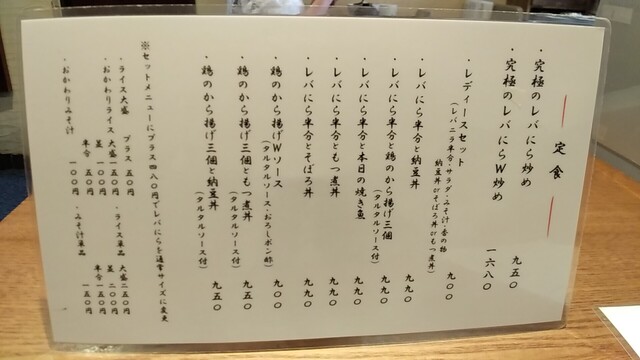 定食
・究極のレバにら炒め 九五〇
・究極のレバにらW炒め 一六八〇
・レディースセット 九〇〇
(レバニラ半分・サラダ・みそ汁・香の物
納豆丼orそぼろ丼orもつ煮丼)
・レバにら半分と納豆丼 九九〇
・レバにら半分と鶏のから揚げ三個 九九〇
(タルタルソース付)
・レバにら半分と本日の焼き魚 九九〇
・レバにら半分ともつ煮丼 九九〇
・レバにら半分とそぼろ丼 九九〇
・鶏のから揚げWソース 九〇〇
(タルタルソース・おろしポン酢)
・鶏のから揚げ三個ともつ煮丼 九五〇
(タルタルソース付)
・鶏のから揚げ三個と納豆丼 九五〇
(タルタルソース付)
※セットメニューにプラス四八〇円でレバにらを通常サイズに変更
・ライス大盛 プラス 五〇円
・ライス単品 大盛二五〇円
並 二〇〇円
半分 一五〇円
・おかわりライス 大盛一五〇円
並 一〇〇円
半分 五〇円
・みそ汁単品 一五〇円
・おかわりみそ汁 一〇〇円